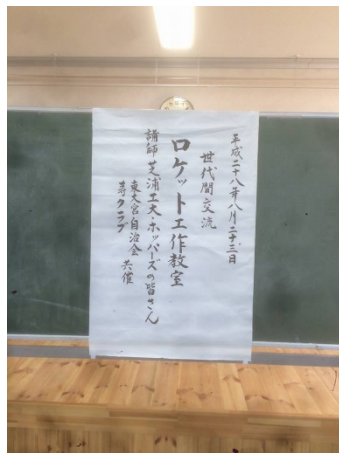 平成二十八年八月二十三日
世代間交流
ロケット工作教室
講師 芝浦工大・ホッパーズの皆さん
東大宮自治会 共催
寿クラブ